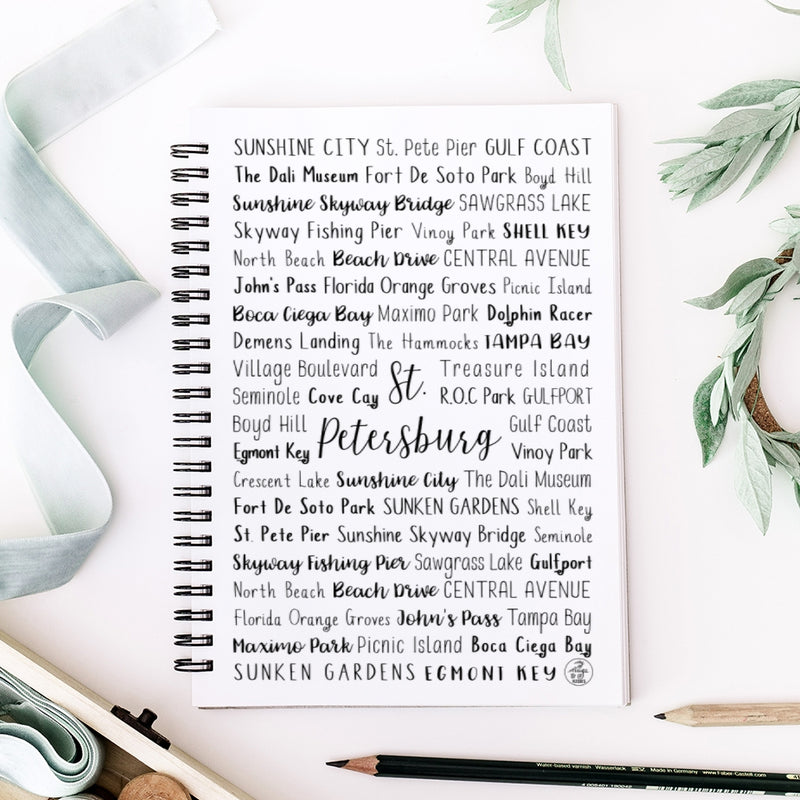 SUNSHINE CITY St. Pete Pier GULF COAST
The Dali Museum Fort De Soto Park Boyd Hill
Sunshine Skyway Bridge SAWGRASS LAKE
Skyway Fishing Pier Vinoy Park SHELL KEY
North Beach Beach Drive CENTRAL AVENUE
John's Pass Florida Orange Groves Picnic Island
Boca Ciega Bay Maximo Park Dolphin Racer
Demens Landing The Hammocks TAMPA BAY
Village Boulevard St. Treasure Island
Seminole Cove Cay R.O.C Park GULFPORT
Boyd Hill Petersburg Gulf Coast
Egmont Key Vinoy Park
Crescent Lake Sunshine City The Dali Museum
Fort De Soto Park SUNKEN GARDENS Shell Key
St. Pete Pier Sunshine Skyway Bridge Seminole
Skyway Fishing Pier Sawgrass Lake Gulfport
North Beach Beach Drive CENTRAL AVENUE
Florida Orange Groves John's Pass Tampa Bay
Maximo Park Picnic Island Boca Ciega Bay
SUNKEN GARDENS EGMONT KEY
Water-based varnish Wasserlack Made in Germany www.Faber-Castell.com